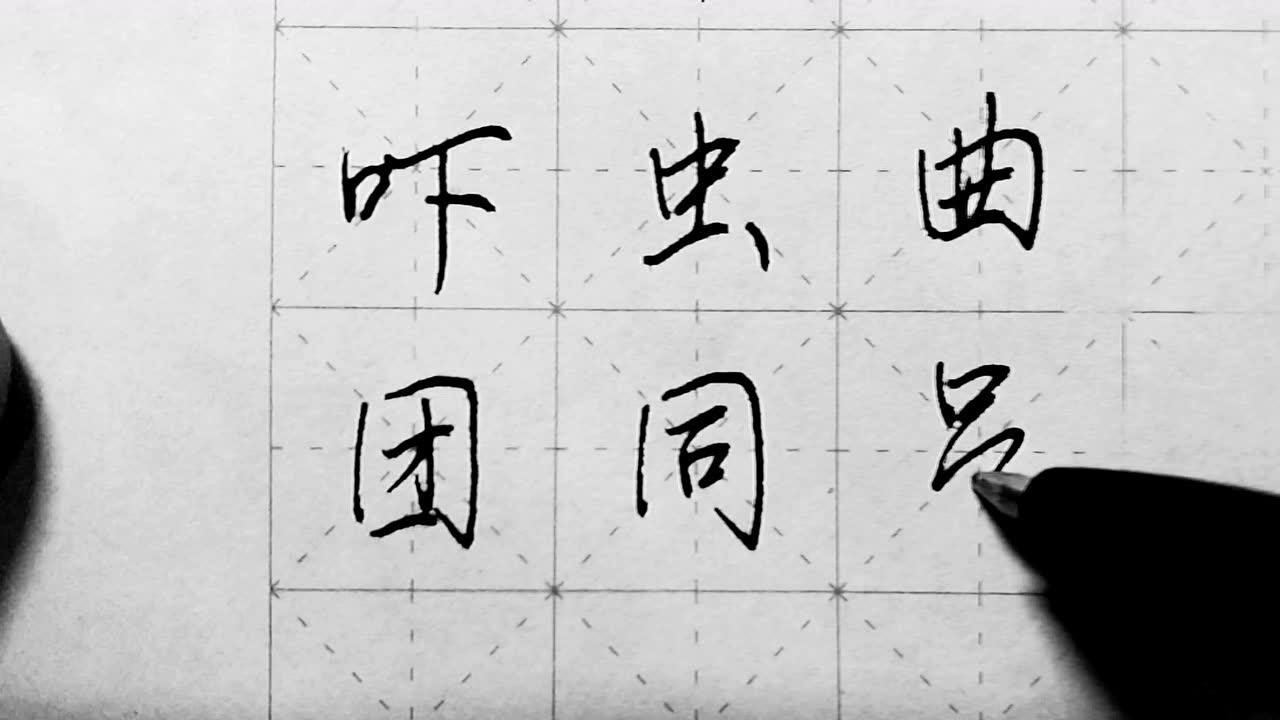 吓虫曲
团同